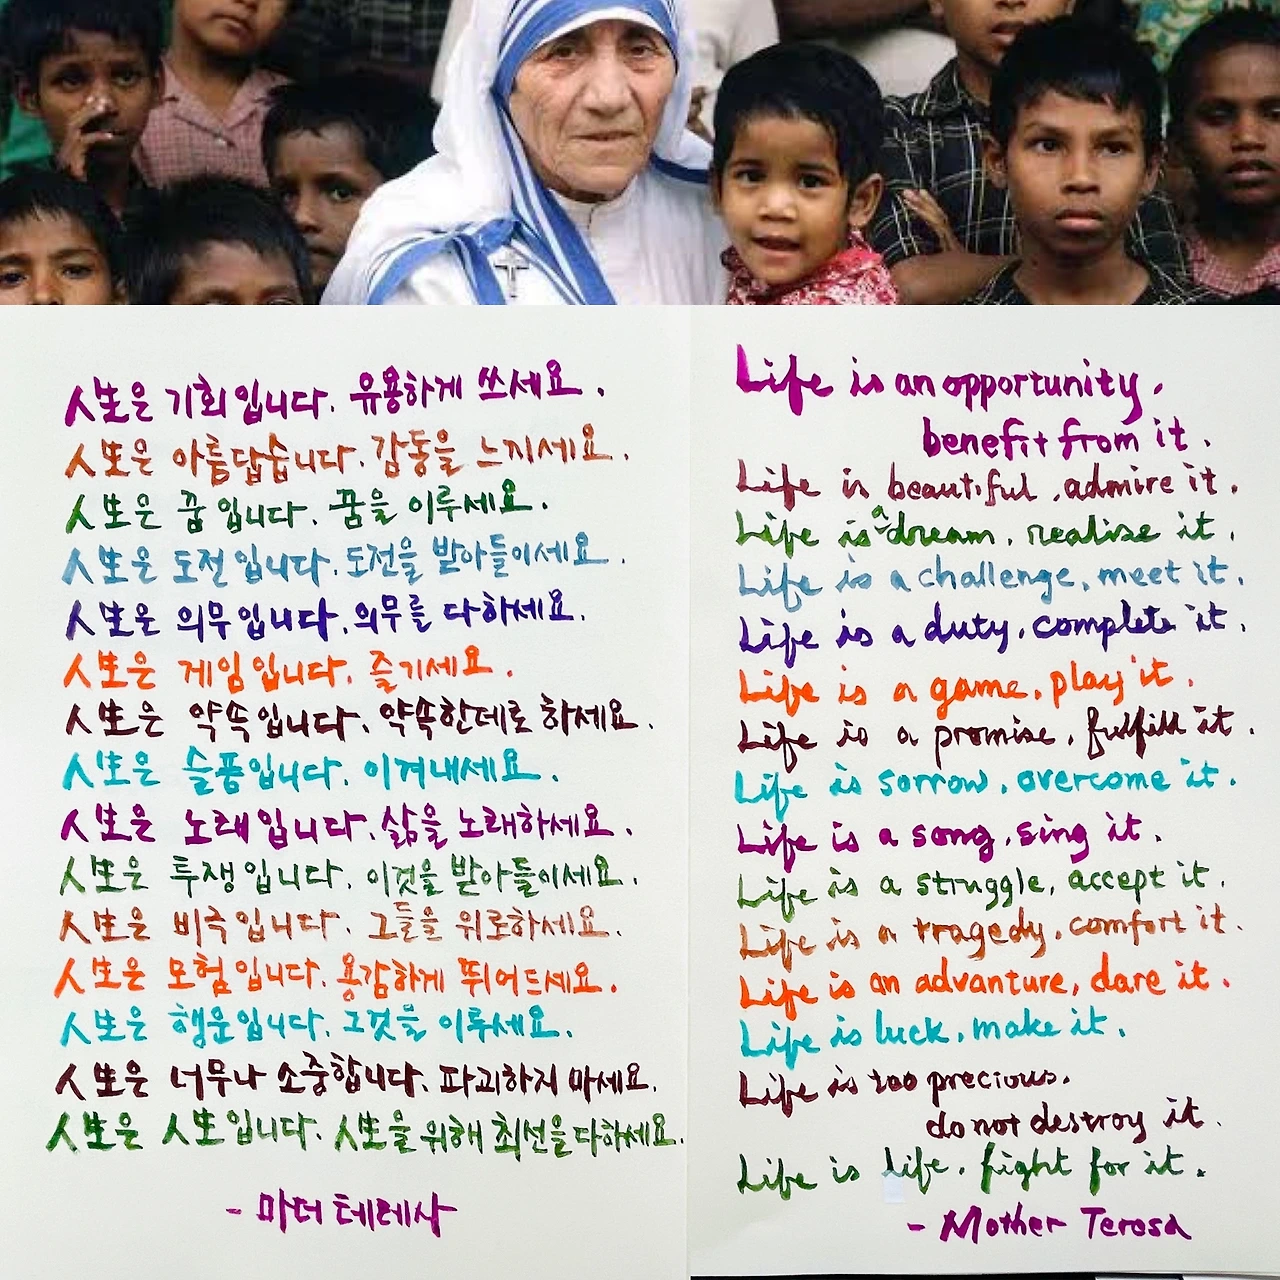 人生은 기회입니다. 유용하게 쓰세요.
人生은 아름답습니다. 감동을 느끼세요.
人生은 꿈입니다. 꿈을 이루세요.
人生은 도전입니다. 도전을 받아들이세요.
人生은 의무입니다. 의무를 다하세요.
人生은 게임입니다. 즐기세요.
人生은 약속입니다. 약속한데로 하세요.
人生은 슬픔입니다. 이겨내세요.
人生은 노래입니다. 삶을 노래하세요.
人生은 투쟁입니다. 이것을 받아들이세요.
人生은 비극입니다. 그들을 위로하세요.
人生은 모험입니다. 용감하게 뛰어드세요.
人生은 행운입니다. 그것을 이루세요.
人生은 너무나 소중합니다. 파괴하지 마세요.
人生은 人生입니다. 人生을 위해 최선을 다하세요.
- 마더 테레사
Life is an opportunity,
benefit from it.
Life is beautiful, admire it.
Life is a dream, realise it.
Life is a challenge, meet it.
Life is a duty, complete it.
Life is a game, play it.
Life is a promise, fulfill it.
Life is sorrow, overcome it.
Life is a song, sing it.
Life is a struggle, accept it.
Life is a tragedy, comfort it.
Life is an advanture, dare it.
Life is luck, make it.
Life is too precious.
do not destroy it.
Life is life, fight for it.
- Mother Teresa